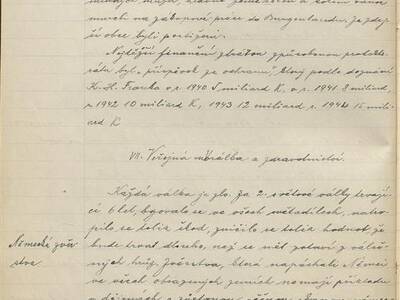 musili na zákopové práce do Burgenlandu, je zdej-
ší obec byli postiženi.
Nejtěžší finanční zátěžou způsobenou protekto-
rátu byl „příspěvek za ochranu", který podle doznání
K. H. Franka v r. 1940 5 miliard K, v r. 1941 8 miliard,
r. 1942 10 miliard K, 1943 12 miliard, r. 1944 15 mili-
ard K
VII. Veřejná morálka a zdravotnictví.
Každá válka je zlo. Za 2. světové války trvají-
cí 6 let, bojovalo se ve všech světadílech, natro-
pilo se tolik škod, zničilo se tolik hodnot, že
bude trvat dlouho, než se svět zotaví z váleč-
ných hrůz. Zvěrstva, která napáchali Němci
Německá zvěr-
stva.
ve všech obsazených zemích nemají příkladu
v dějinách a zůstanou